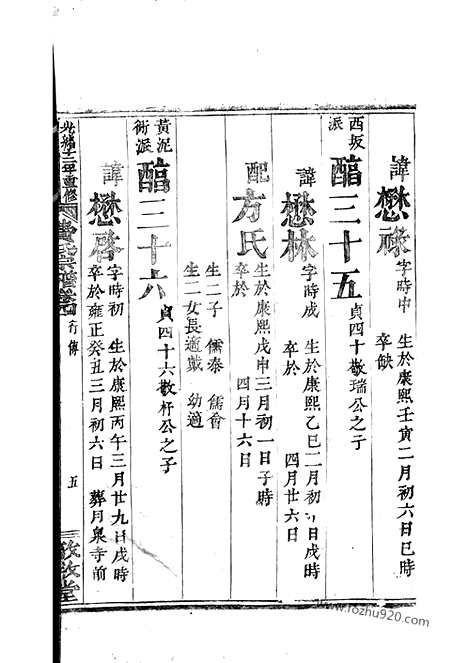 諱懋祿字時中 生於康熙壬寅二月初六日巳時
卒缺
西坂派 醕三十五 貞四十敬瑞公之子
諱懋林字時成 生於康熙乙巳二月初 日戌時
卒於 四月廿六日
配方氏生於康熙戊申三月初一日子時
卒於 四月十六日
生二子 儒泰 儒會
生二女長適戴 幼適
黃泥衕派 醕三十六 貞四十六敬杆公之子
諱懋啓字時初 生於康熙丙午三月廿九日戌時
卒於雍正癸丑三月初六日 葬月泉寺前
光緒十二年重修 氏宗譜卷 行傳 五 敬堂
www.fozhu920.com